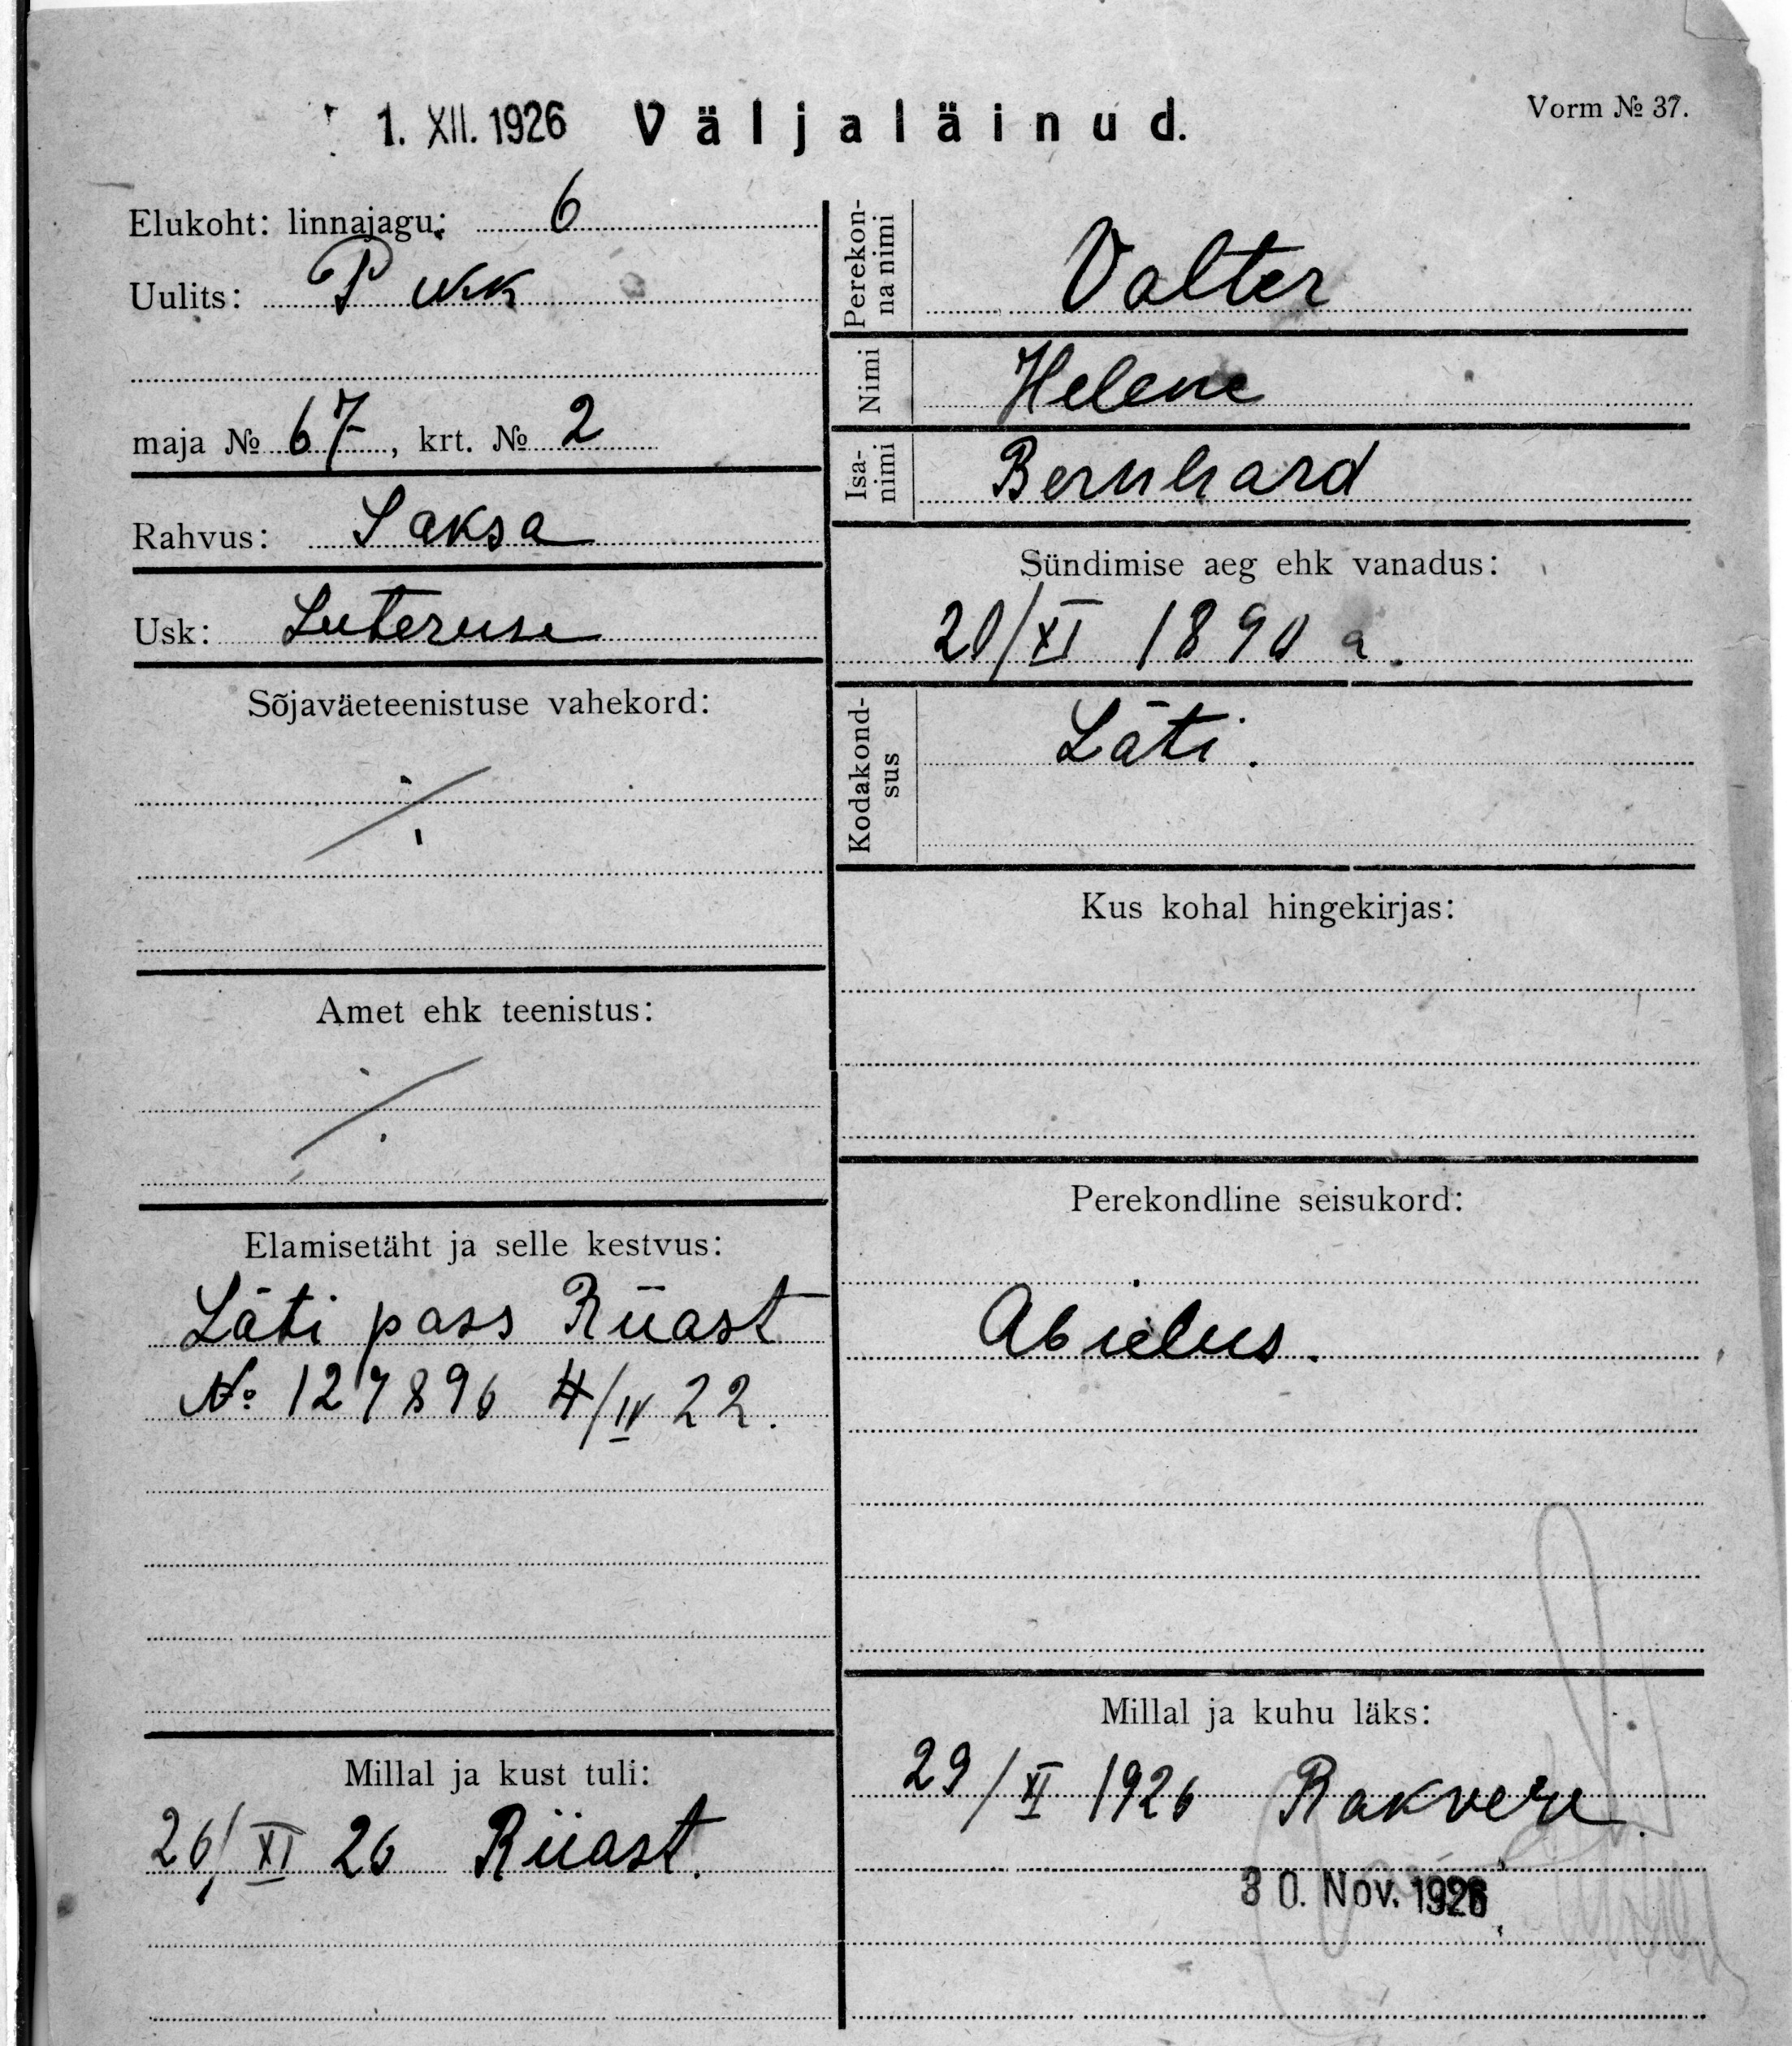 1. XII. 1926 Väljaläinud.
Vorm № 37.
Elukoht: linnajagu: 6
Uulits:
maja № 67, krt. № 2
Rahvus: Saksa
Usk: Luteruse
Sõjaväeteenistuse vahekord:
Amet ehk teenistus:
Elamisetäht ja selle kestvus:
Läti pass Riiast
№ 127896 4/IV 22.
Millal ja kust tuli:
26/XI 26 Riiast.
Perekon-
na nimi
Valter
Nimi Helene
Isa-
nimi
Bernhard
Sündimise aeg ehk vanadus:
20/XI 1890 a.
Kodakond-
sus
Läti.
Kus kohal hingekirjas:
Perekondline seisukord:
Abielus.
Millal ja kuhu läks:
29/XI 1926 Rakvere.
30. Nov. 1926